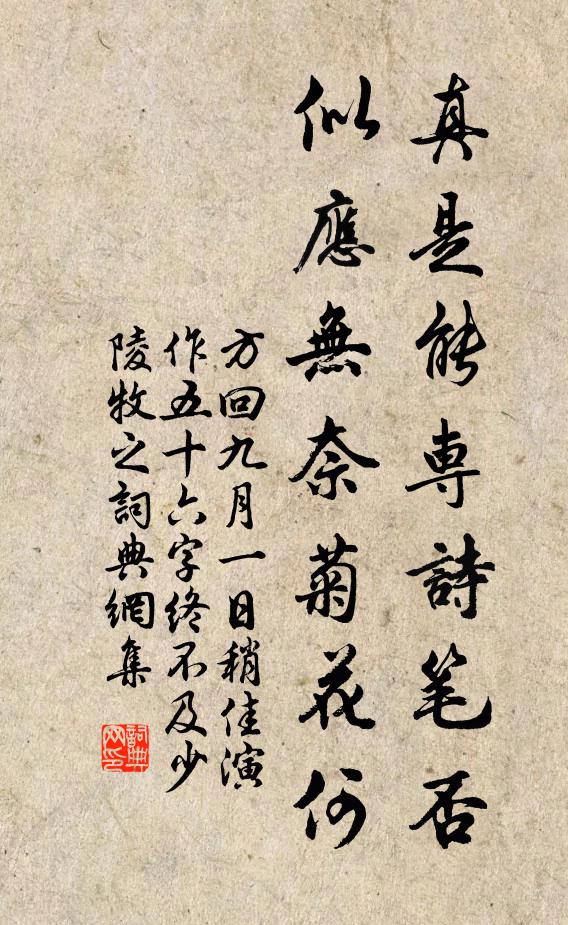 真是能専詩笔否
似應無奈菊花何
方回九月一日稍佳演
作五十六字終不及少
陵牧之詞典網集
詞典
网印